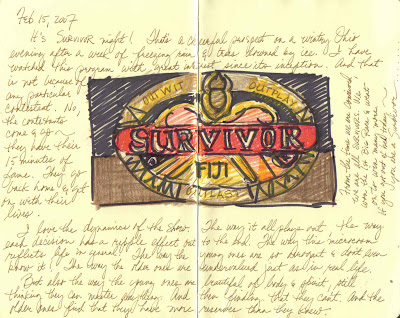 Feb 15, 2007
It's Survivor night! That's a cheerful prospect on a wintry Ohio
evening after a week of freezing rain & trees downed by ice. I have
watched this program with great interest since its inception. And that
is not because of
any particular
contestant. No,
the contestants
come & go —
they have their
15 minutes of
fame. They go
back home & get
on with their
lives.
OUTWIT OUTPLAY
SURVIVOR
FIJI
OUTLAST
From the time we are conceived
we are all survivors. We
survive
on to
if you
you are a Survivor
I love the dynamics of the show. The way it all plays out, the way
each decision has a ripple effect out to the end. The way this microcosm
reflects life in general. The way the young ones are so arrogant & don't even
know it! The way the older ones are undervalued just as in real life.
But also the way the young ones are beautiful of body & spirit, still
thinking they can master anything. And then finding that they can't. And the
older ones find that they have more reserves than they knew.